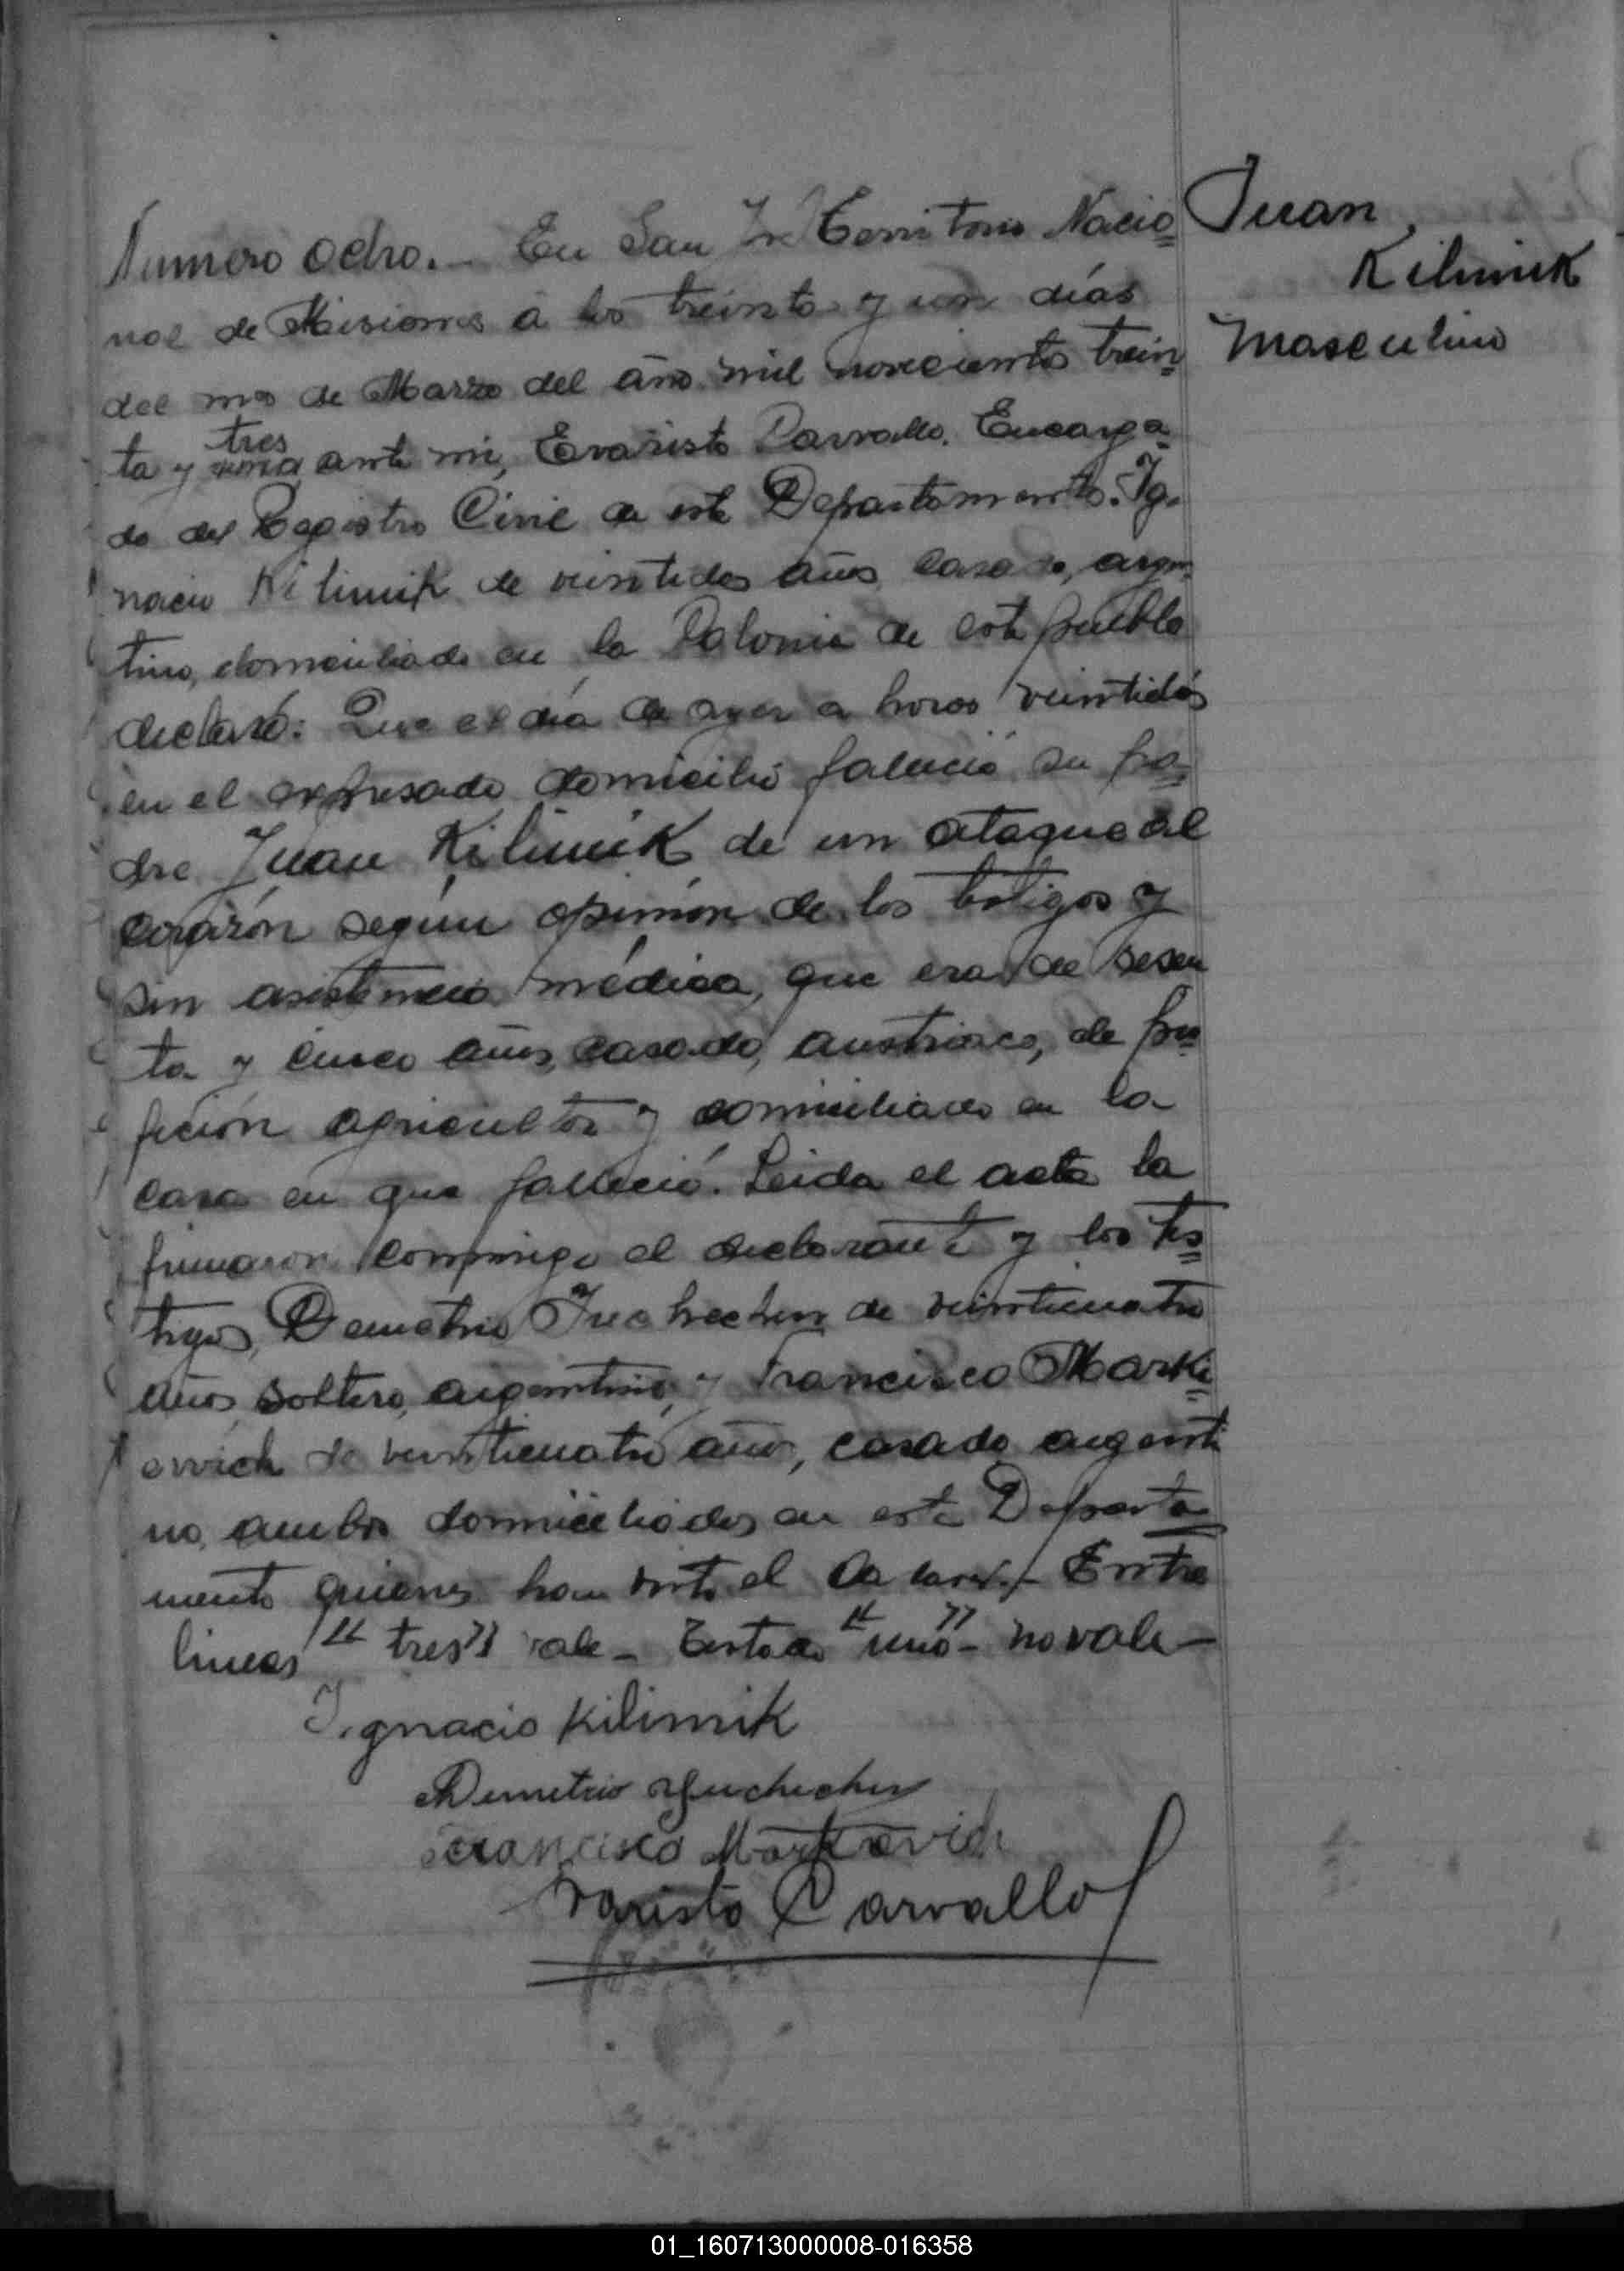 Número ocho.- En San José Territorio Nacio=
nal de Misiones á los treinta y un días
del mes de Marzo del año mil novecientos trein=
tres
ta y uno, ante mi, Evaristo Carvallo, Encarga=
do del Registro Civil de este Departamento. Ig-
nacio Kilimik de veintidos años, casado, argen-
tino, domiciliado en la Colonia de este pueblo
declaró: Que el día de ayer a horas veintidós
en el expresado domicilio falleció su pa=
dre Juan Kilimik de un ataque al
corazón según opinión de los testigos y
sin asistencia médica, que era de sesen
ta y cinco años, casado, austriaco, de pro=
fección agricultor y domiciliado en la
casa en que falleció. Leida el acta la
firmaron conmigo el declarante y los tes=
tigos, Demetrio Juchechen de veinticuatro
años, soltero, argentino, y Francisco Mark=
ovvich de veinticuatro años, casado, argenti
no, ambos domiciliados en este Departa=
mento quienes han visto el cadaver.- Entre
lineas "tres" vale- Testado "uno"- no vale-
Ignacio Kilimik
Demetrio Juchechen
Francisco Markovich
Evaristo Carvallo
Juan
Kilimik
Masculino
01_160713000008-016358